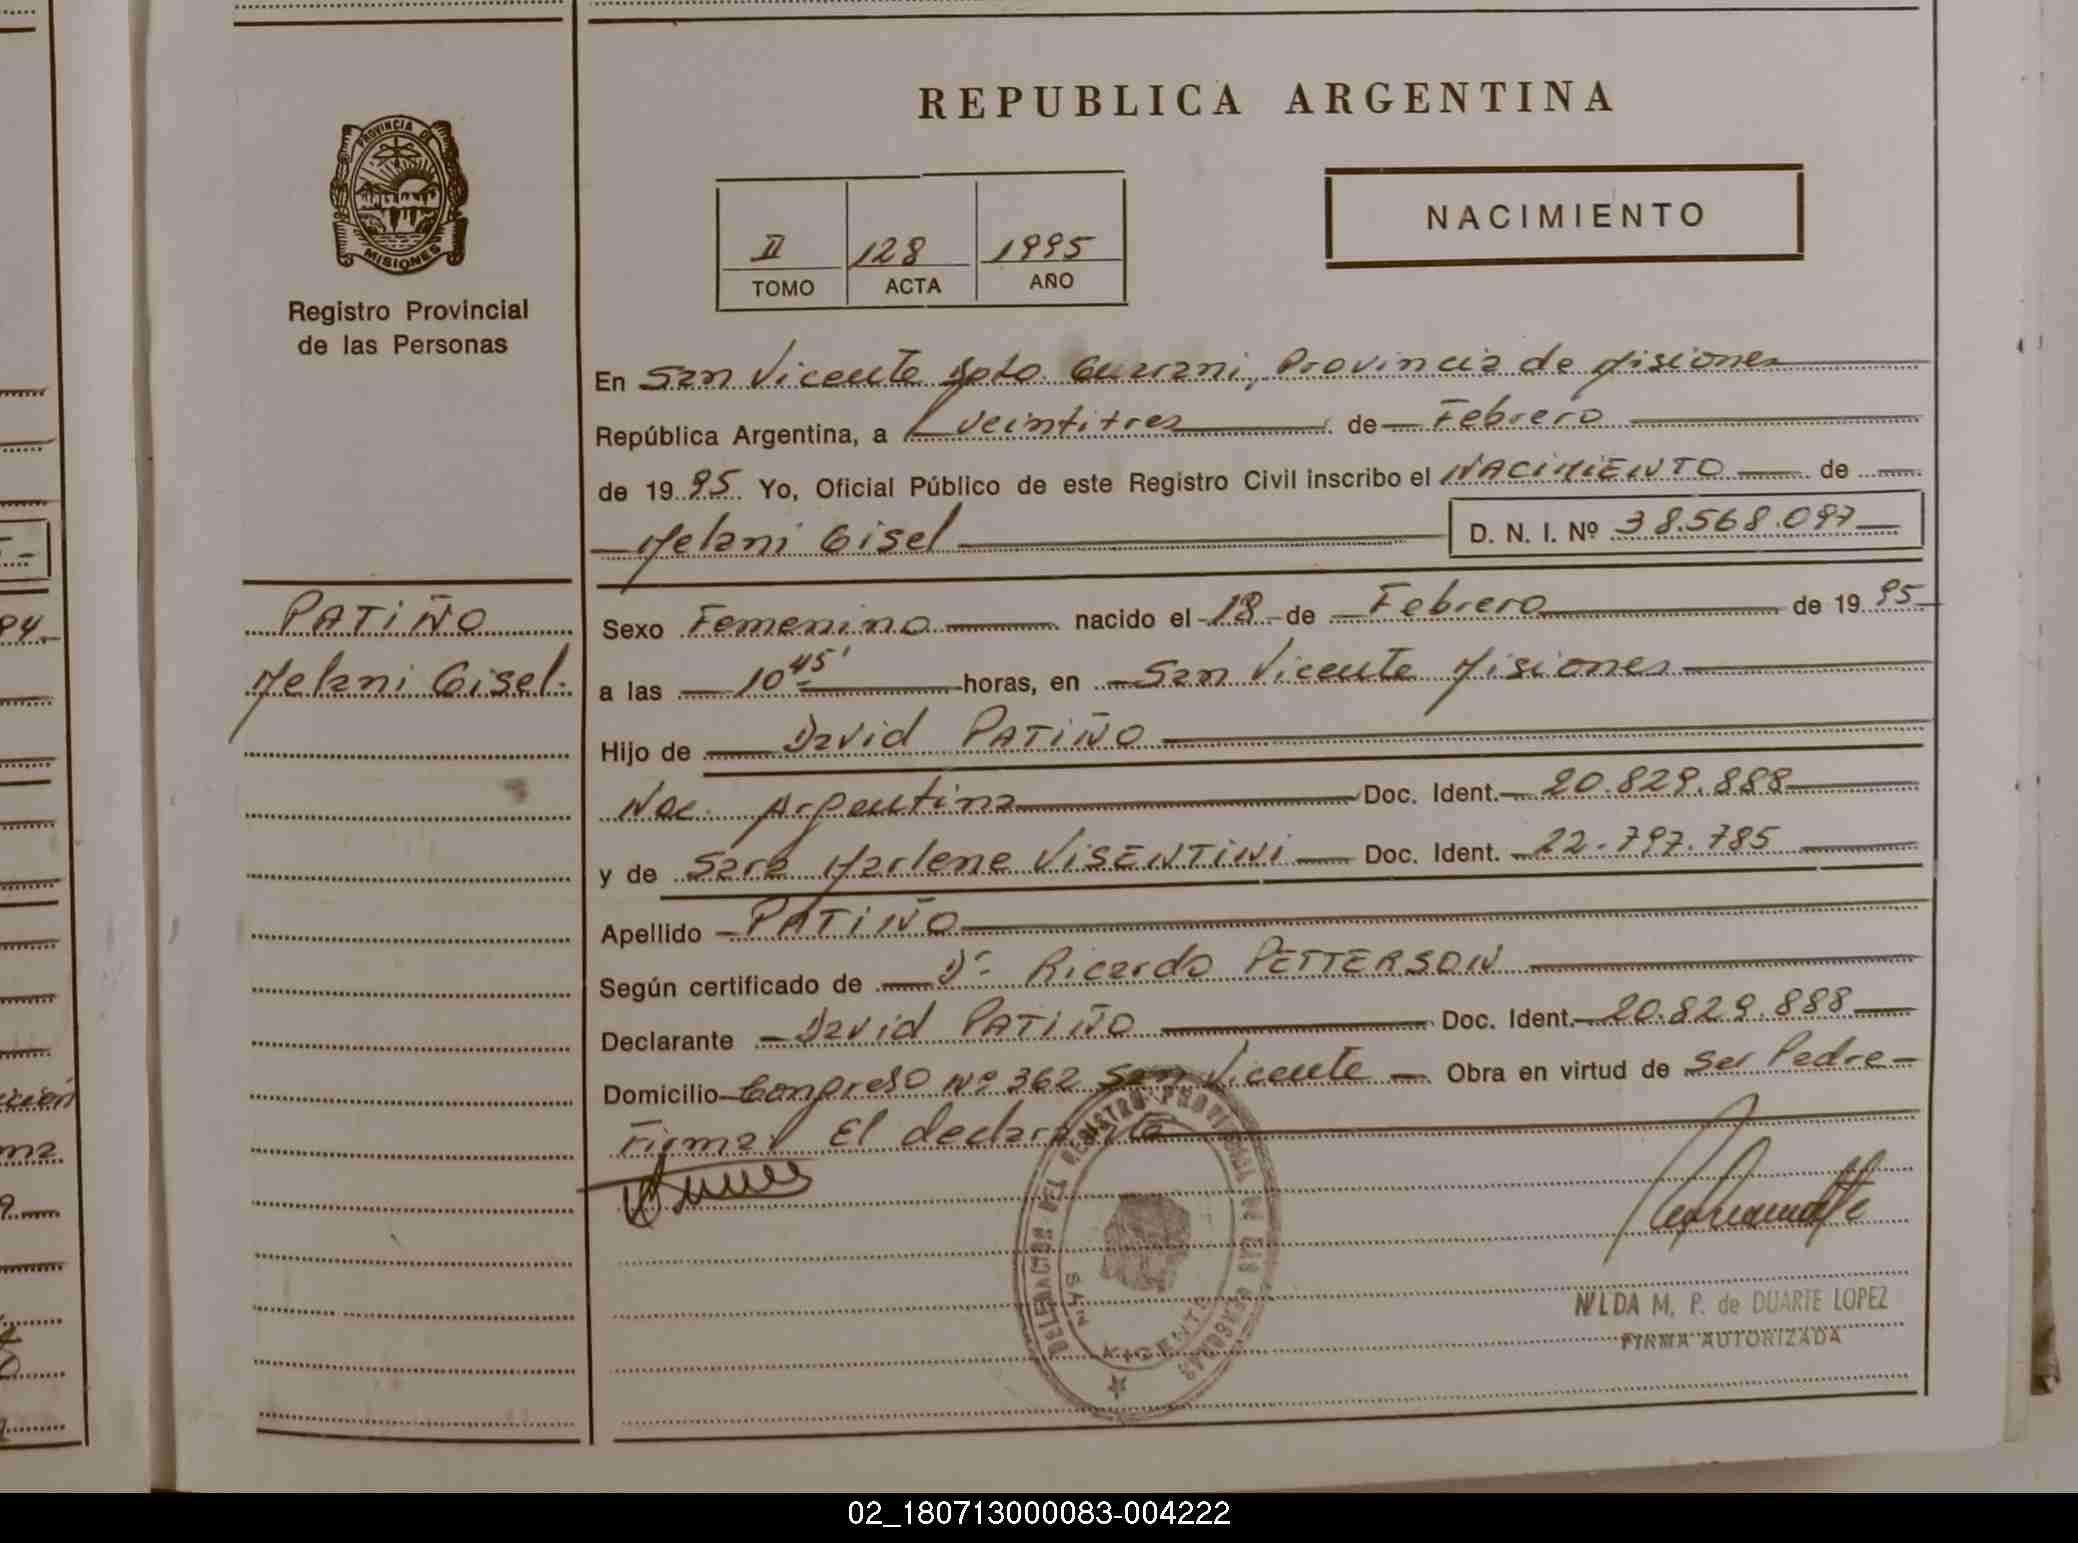 REPUBLICA ARGENTINA
PROVINCIA DE
MISIONES
Registro Provincial
de las Personas
II 128 1995
TOMO ACTA AÑO
NACIMIENTO
En San Vicente Dpto. Guarani, Provincia de Misiones
República Argentina, a veintitres de Febrero
de 1995 Yo, Oficial Público de este Registro Civil inscribo el NACIMIENTO de
Melani Gisel D. N. I. Nº 38.568.097
PATIÑO
Melani Gisel.
Sexo Femenino nacido el 18 de Febrero de 1995
a las 10 45' horas, en San Vicente Misiones
Hijo de David PATIÑO
Nac. Argentina Doc. Ident. 20.829.888
y de Sara Marlene VISENTINI Doc. Ident. 22.797.785
Apellido PATIÑO
Según certificado de Dr. Ricardo PETTERSON
Declarante David PATIÑO Doc. Ident. 20.829.888
Domicilio Congreso Nº 362 San Vicente Obra en virtud de ser Padre
Firma El declarante
DELEGACION DEL REGISTRO PROVINCIAL DE LAS PERSONAS
SAN VICENTE
NILDA M. P. de DUARTE LOPEZ
FIRMA AUTORIZADA
02_180713000083-004222